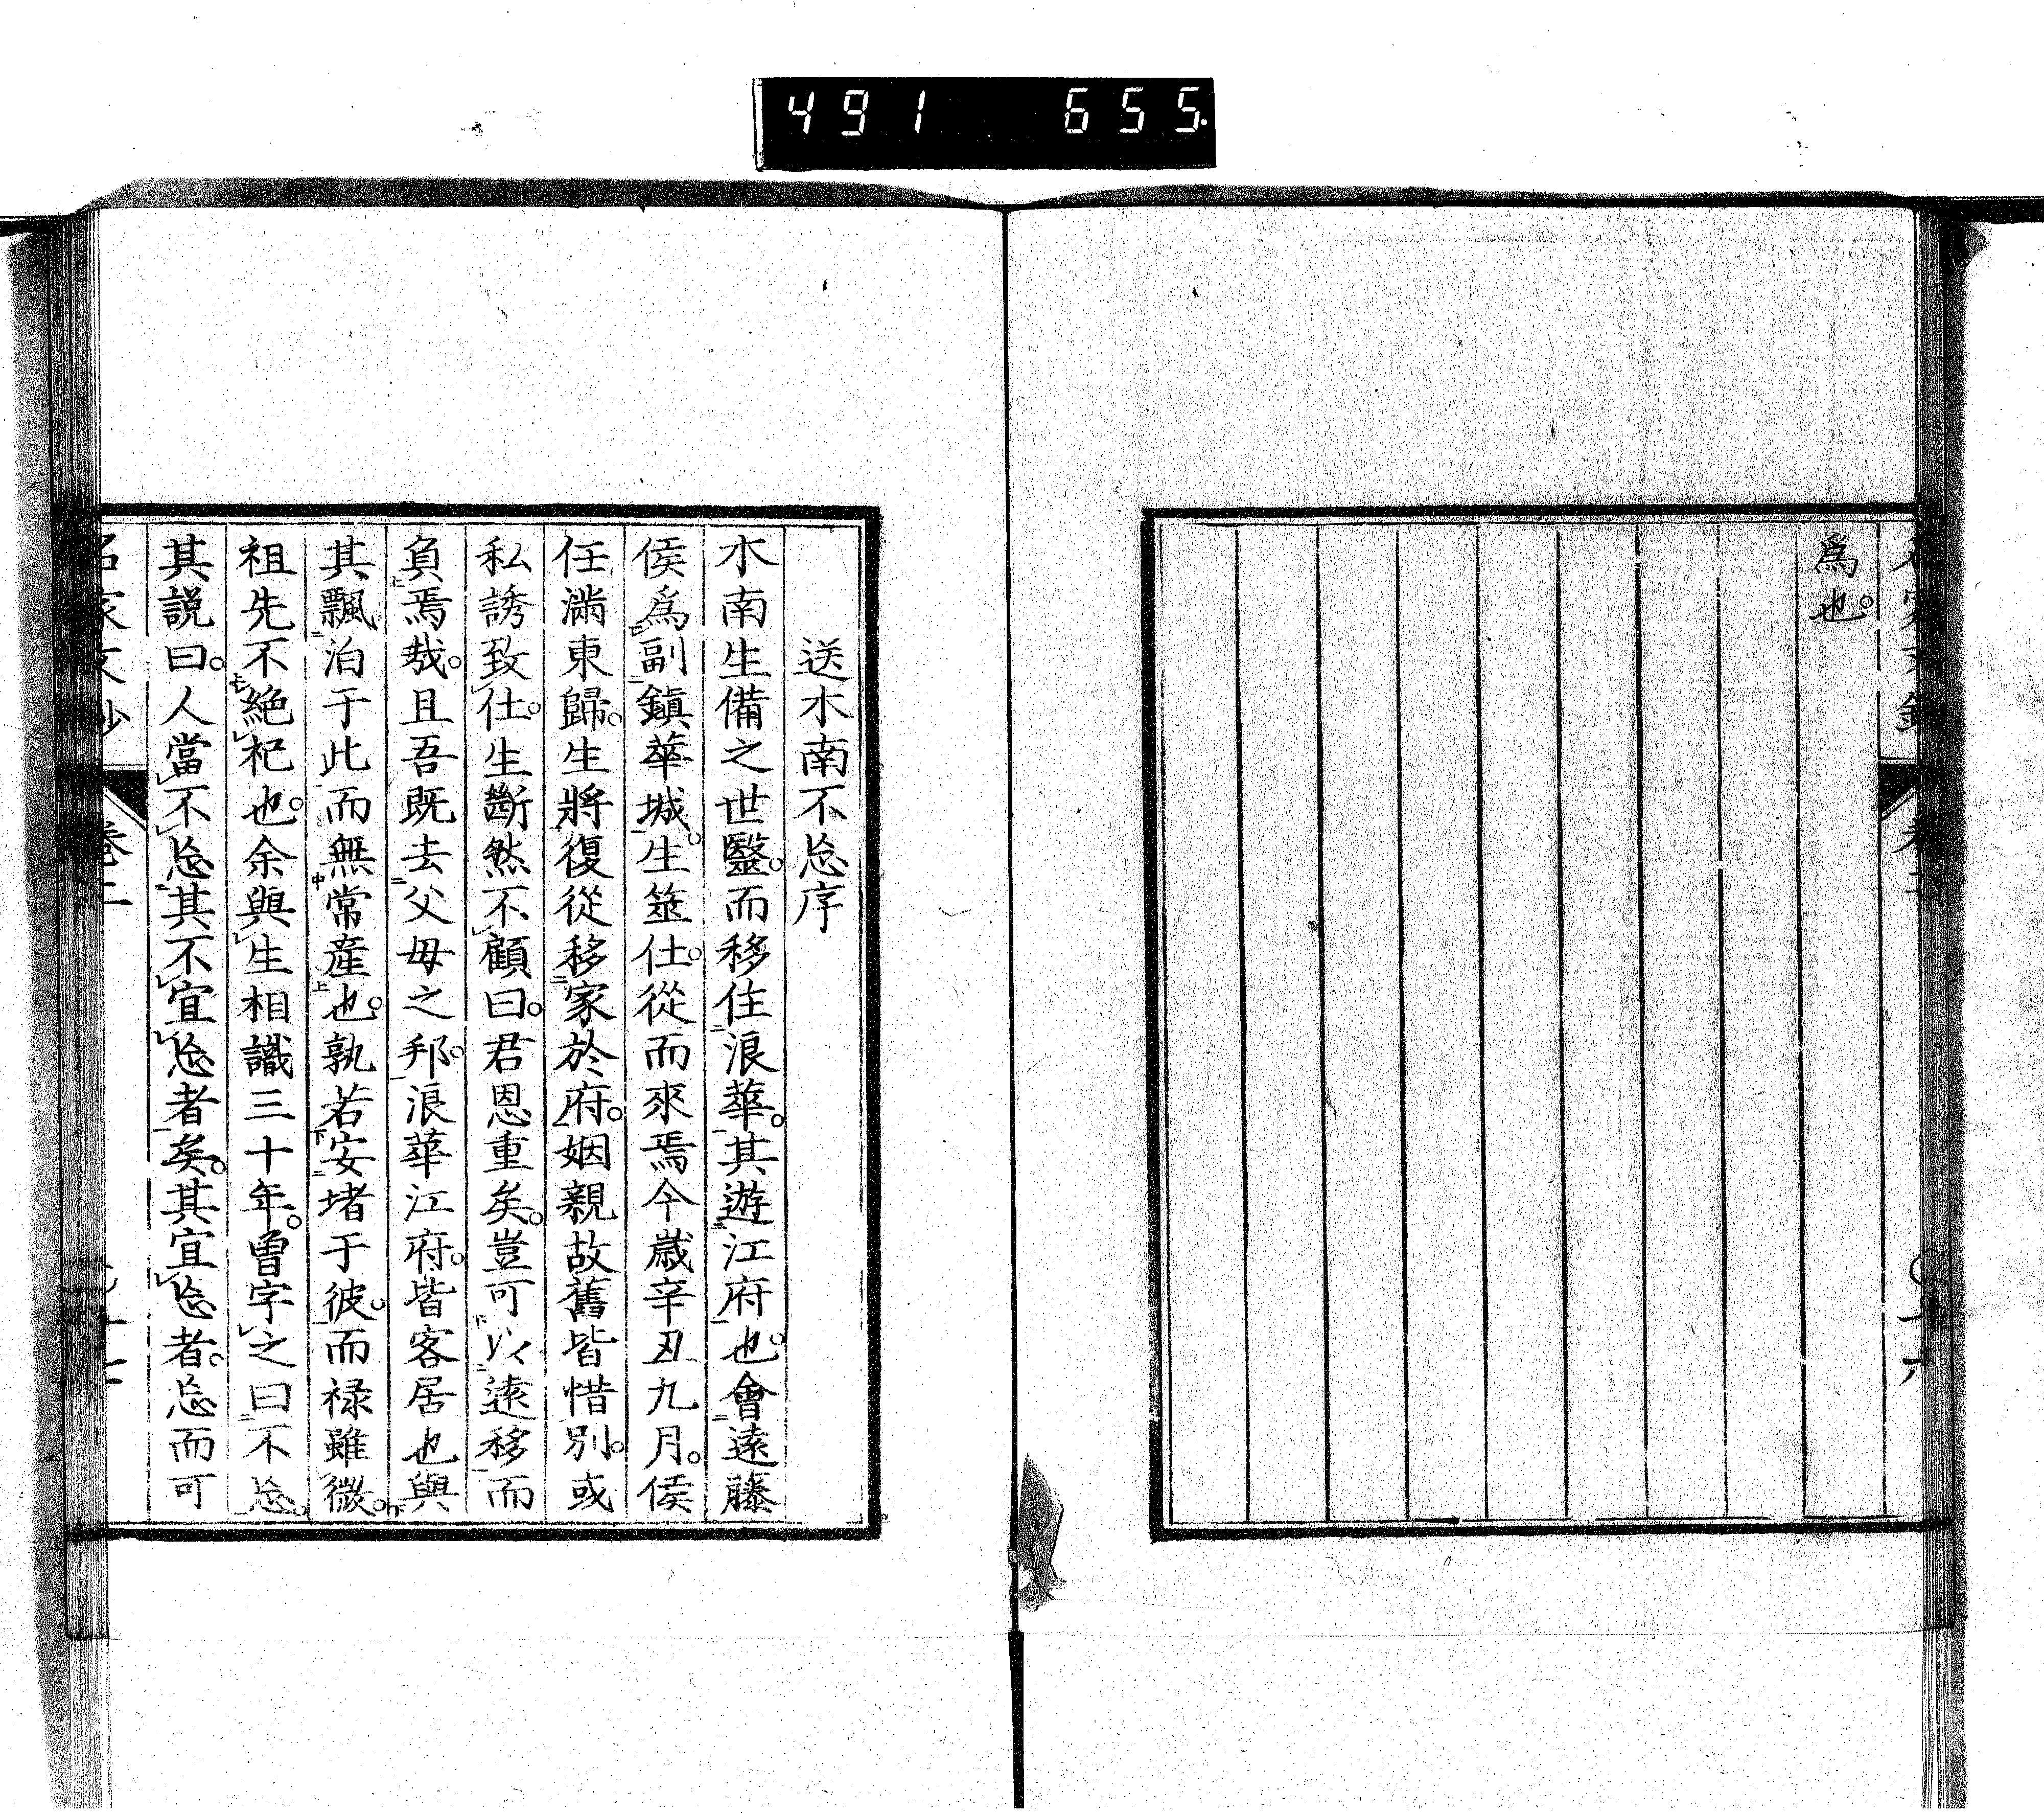 491 655
爲也。
送木南不忘序
木南生備之世醫。而移住浪華。其遊江府也。會遠藤
侯爲副鎭華城。生筮仕。從而來焉今歲辛丑九月。侯
任滿東歸。生將復從移家於府。姻親故舊皆惜別。或
私誘致仕。生斷然不顧曰。君恩重矣。豈可以遠移而
負焉哉。且吾既去父母之邦。浪華江府。皆客居也與
其飄泊于此而無常産也。孰若安堵于彼。而禄雖微。
祖先不絶祀也。余與生相識三十年。曾字之曰不忘。
其説曰。人當不忘其不宜忘者矣。其宜忘者。忘而可
名家文抄 卷二